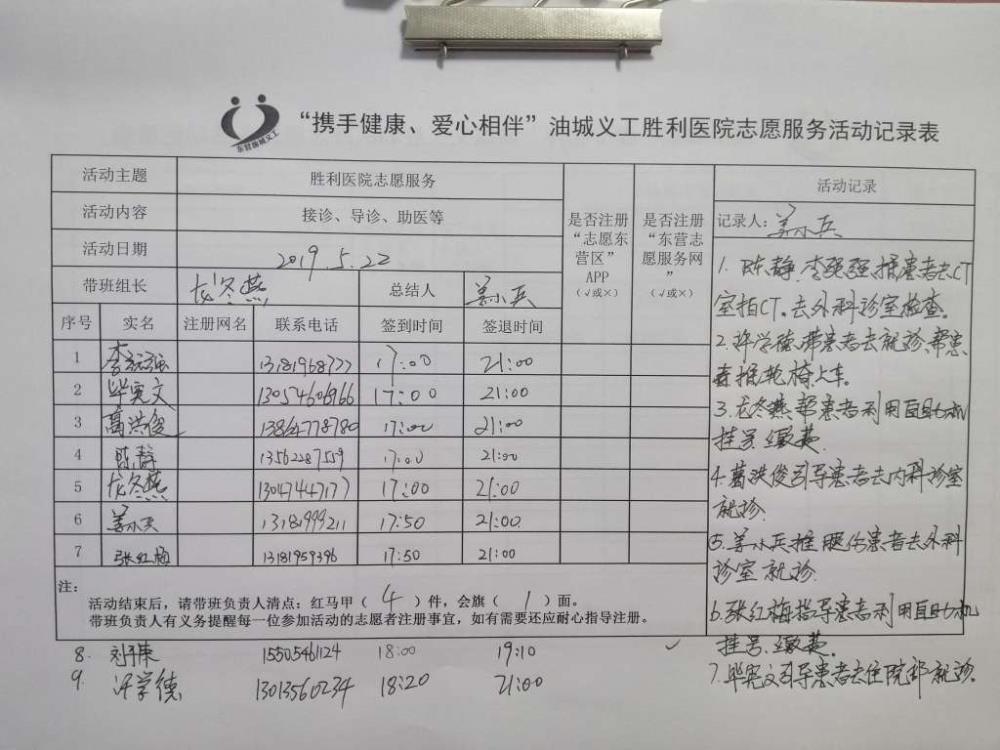 东营油城义工
“携手健康、爱心相伴”油城义工胜利医院志愿服务活动记录表
活动主题 胜利医院志愿服务
活动内容 接诊、导诊、助医等
活动日期 2019.5.22
带班组长 尤冬燕 总结人 姜小兵
是否注册“志愿东营区”APP（√或×）
是否注册“东营志愿服务网”（√或×）
序号 实名 注册网名 联系电话 签到时间 签退时间
1 李强强 13181968777 17:00 21:00
2 毕宪文 13054606966 17:00 21:00
3 葛洪俊 13864778780 17:00 21:00
4 陈静 13562287559 17:00 21:00
5 尤冬燕 13047447177 17:00 21:00
6 姜小兵 13181999211 17:50 21:00
7 张红梅 13181959396 17:50 21:00
注：
活动结束后，请带班负责人清点：红马甲（ 4 ）件，会旗（ 1 ）面。
带班负责人有义务提醒每一位参加活动的志愿者注册事宜，如有需要还应耐心指导注册。
8. 15505461124 18:00 19:10 ✓
9. 许学德 13013560234 18:20 21:00
活动记录
记录人：姜小兵
1. 陈静.李强强.推患者去CT
室拍CT.去外科诊室检查。
2.许学德.带患者去就诊.帮患
者推轮椅上车。
3.尤冬燕.帮患者利用自助机
挂号.缴费
4.葛洪俊引导患者去内科诊室
就诊.
5.姜小兵推腿伤患者去外科
诊室就诊.
6.张红梅指导患者利用自助机
挂号.缴费.
7.毕宪文引导患者去住院部就诊.